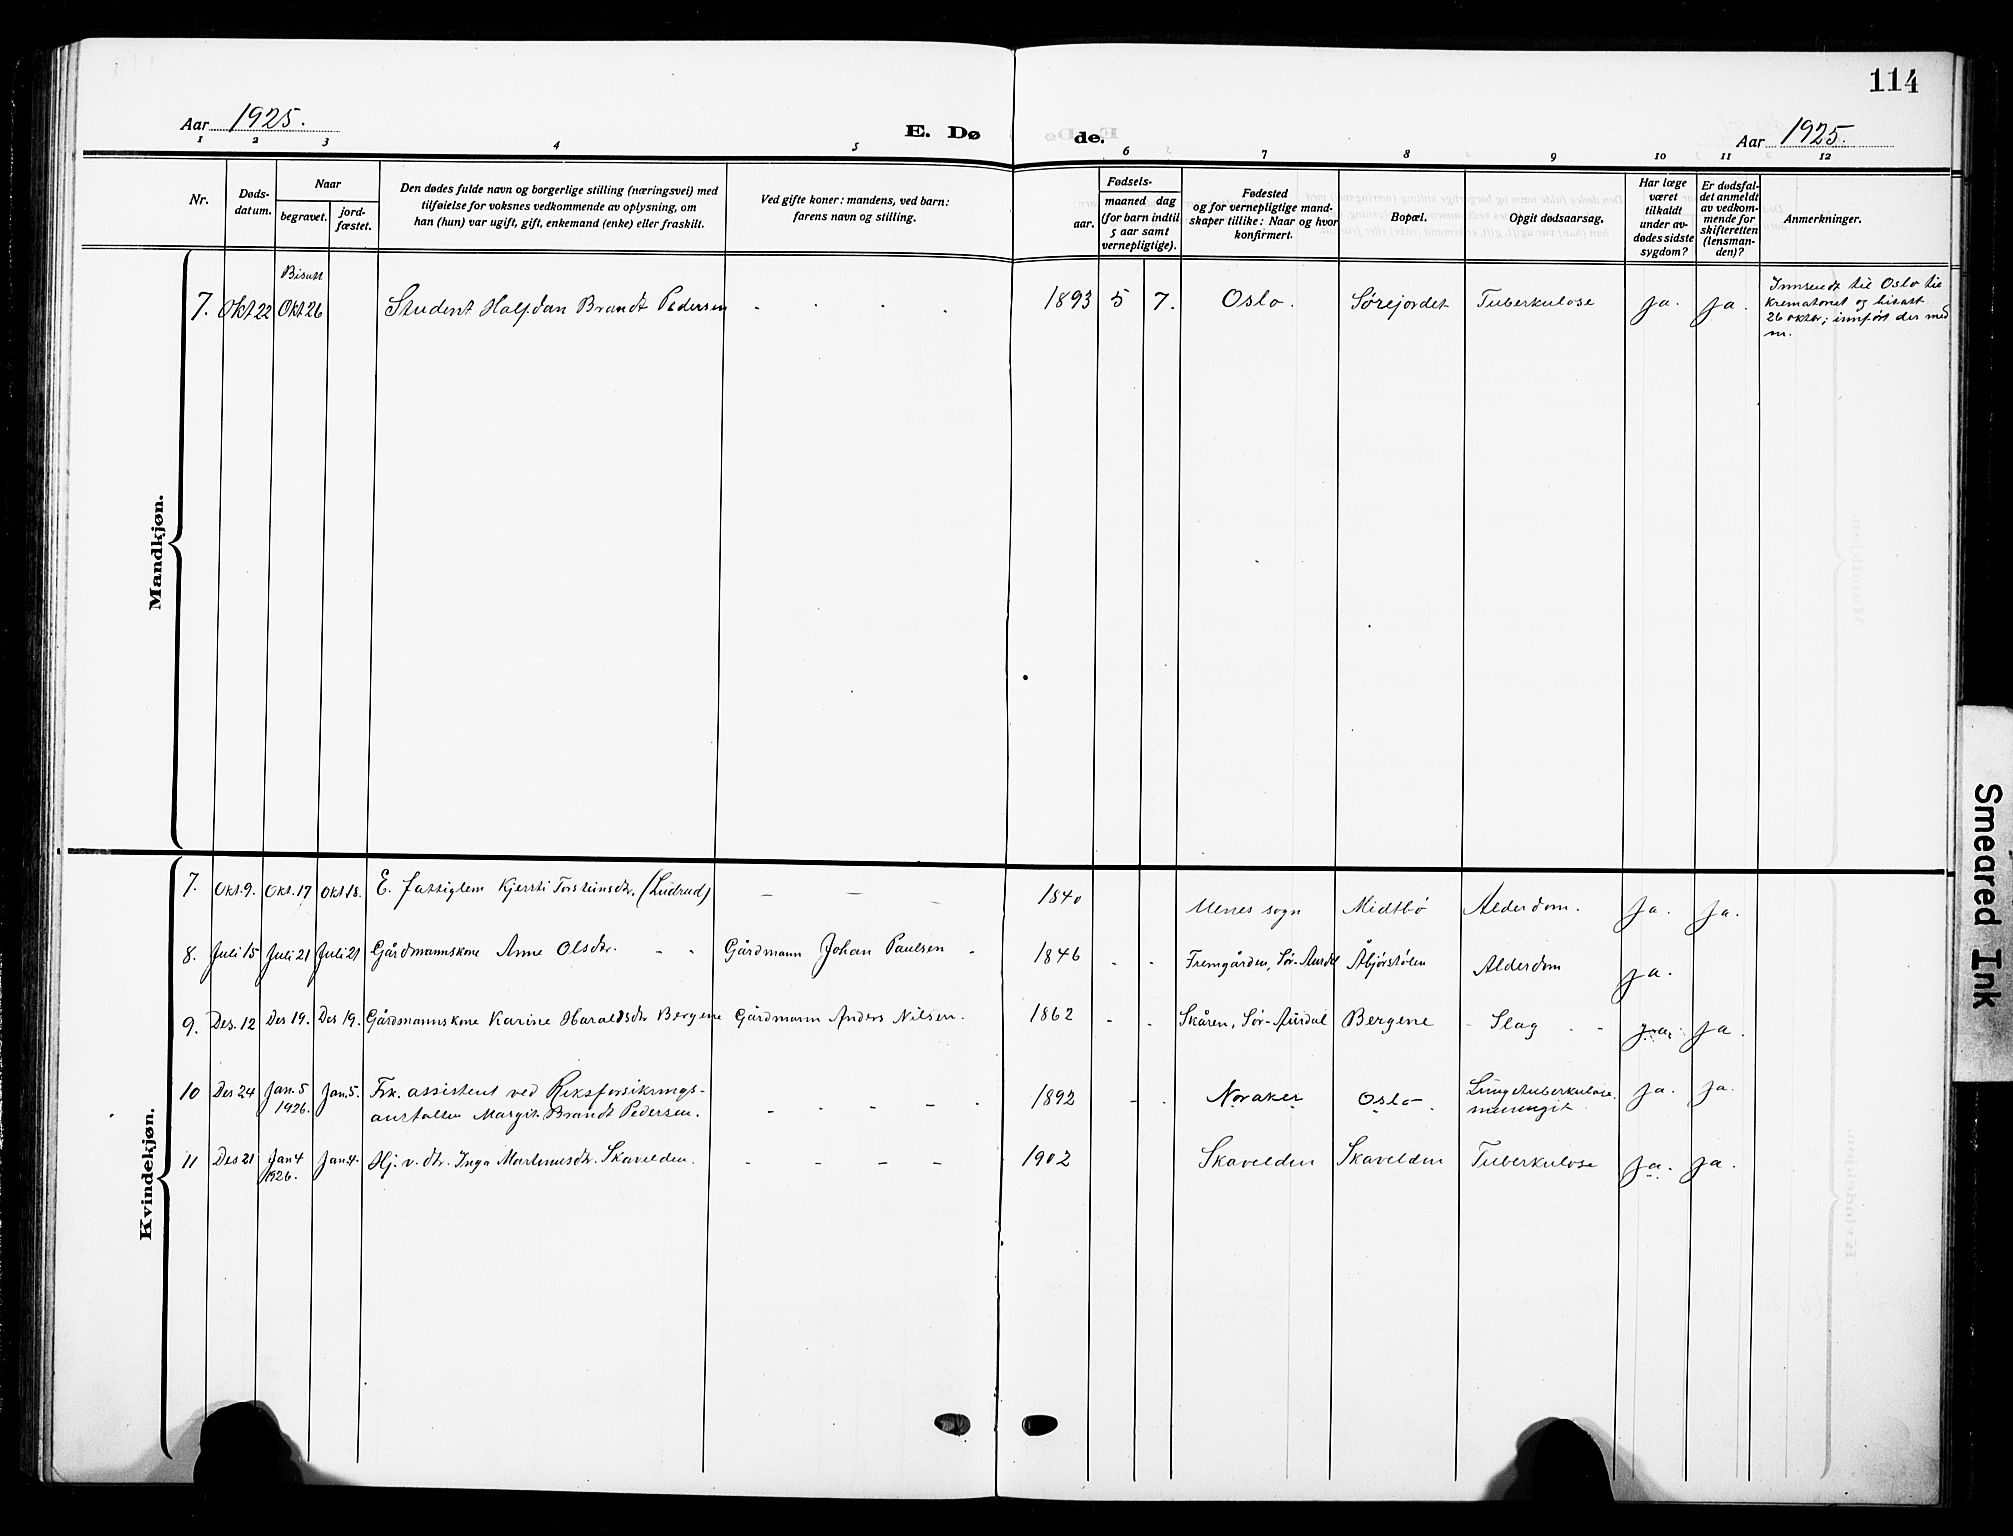 114
Aar 1925.
E. Døde.
Aar 1925.
1 2 3 4 5 6 7 8 9 10 11 12
Nr.
Døds-
datum.
Naar
begravet.
jord-
fæstet.
Den dødes fulde navn og borgerlige stilling (næringsvei) med
tilføielse for voksnes vedkommende av oplysning, om
han (hun) var ugift, gift, enkemand (enke) eller fraskilt.
Ved gifte koner: mandens, ved barn:
farens navn og stilling.
Fødsels-
aar.
maaned dag
(for barn indtil
5 aar samt
vernepligtige).
Fødested
og for vernepligtige mand-
skaper tillike: Naar og hvor
konfirmert.
Bopæl.
Opgit dødsaarsag.
Har læge
været
tilkaldt
under av-
dødes sidste
sygdom?
Er dødsfal-
det anmeldt
av vedkom-
mende for
skifteretten
(lensman-
den)?
Anmerkninger.
Mandkjøn.
Bisatt
7. Okt 22 Okt 26 Student Halfdan Brandt Pedersen - - - - 1893 5 7. Oslo. Sørejordet Tuberkulose ja. ja.
Innsendt til Oslo til
krematoriet og bisatt
26 oktbr; innført der med
nr.
Kvindekjøn.
7. Okt. 9. Okt. 17 Okt 18. E. fattiglem Kjersti Torsteinsdtr. (Ludrud) - - - 1840 Ulnes sogn Midtbø Alderdom. ja. ja.
8. Juli 15 Juli 21 Juli 21 Gårdmannskone Anne Olsdtr. - - Gårdmann Johan Paulsen - 1846 - - Fremgården, Sør-Aurdal Åbjørstølen Alderdom ja.
9. Des. 12 Des 19. Des 19. Gårdmannskone Karine Haraldsdtr Bergene Gårdmann Anders Nilsen. 1862 - - Skåren, Sør-Aurdal Bergene - Slag - - ja. ja.
10 Des 24 Jan. 5 1926. Jan. 5. Frk. assistent ved Riksforsikrings-
anstalten Margit Brandt Pedersen. - - - - 1892 - - Noraker Oslo. Lungetuberkulose.
meningit. ja. ja.
11 Des 21 Jan 4 1926. Jan 4. Hj. v. dtr. Inga Martinusdtr. Skavelden. - - - - 1902 Skavelden Skavelden Tuberkulose ja. ja.
Smeared Ink